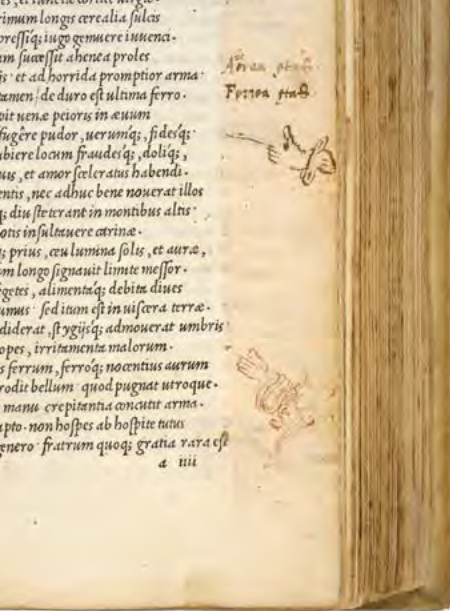 rimum longis cerealia sulcis
pressiq; iugo gemuere iuuenci.
um successit ahenea proles
js, et ad horrida promptior arma.
tamen: de duro est ultima ferro.
pit uenæ peioris in æuum
fugêre pudor, uerumq;, fidesq;.
ubiere locum fraudesq;, doliq;,
uis, et amor sceleratus habendi.
entis, nec adhuc bene nouerat illos
q; diu steterant in montibus altis.
otis insultauere carinæ.
q; prius, ceu lumina solis, et auræ,
um longo signauit limite messor.
egetes, alimentaq; debita diues
umus: sed itum est in uiscera terræ.
diderat, stygijsq; admouerat umbris.
opes, irritamenta malorum.
s ferrum, ferroq; nocentius aurum
rodit bellum: quod pugnat utroque.
manu crepitantia concutit arma.
apto. non hospes ab hospite tutus
genero: fratrum quoq; gratia rara est
a iiii
Ferrea